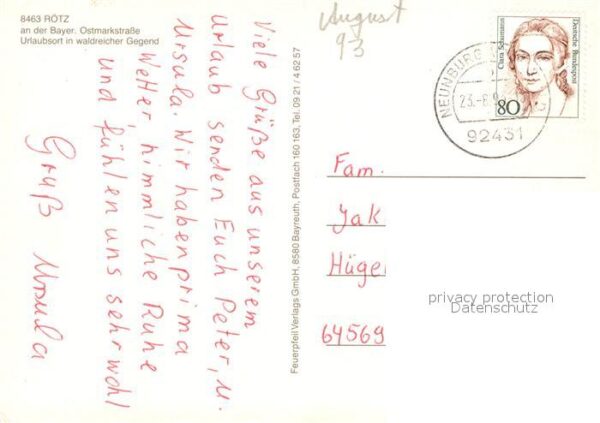 8463 RÖTZ
an der Bayer. Ostmarkstraße
Urlaubsort in waldreicher Gegend
Viele Grüße aus unserem
Urlaub senden Euch Peter, u.
Ursula. Wir haben prima
Wetter, himmliche Ruhe
und fühlen uns sehr wohl
Gruß Ursula
Feuerpfeil Verlags GmbH, 8580 Bayreuth, Postfach 160 163, Tel. 09 21 / 4 62 57
August
93
Clara Schumann
Deutsche Bundespost
80
NEUNBURG
23.-8.9
92431
Fam.
Jak
Hüge
64569
privacy protection
Datenschutz